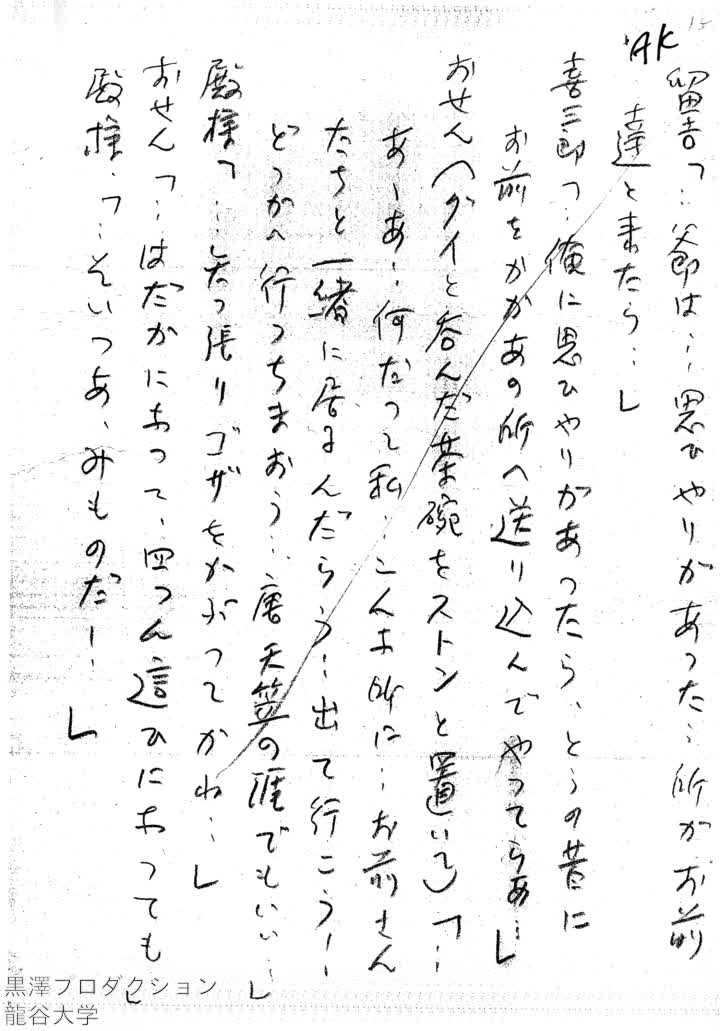 15
AK
留吉「‥爺は‥‥思ひやりがあつた‥所がお前
達と来たら‥‥」
喜三郎「‥俺に思ひやりがあつたら、とうの昔に
お前をかかあの所へ送り込んでやつてらあ‥」
おせん(グイと呑んだ茶碗をストンと置いて)「‥
あーあ‥何だつて私‥こんな所に‥お前さん
たちと一緒に居るんだらう‥出て行こう‥
どつかへ行つちまおう‥唐天竺の涯でもいい‥」
殿様「‥矢つ張りゴザをかぶつてかね‥」
おせん「‥はだかになつて、四つん這ひになつても」
殿様「‥そいつあ、みものだ‥‥」
黒澤プロダクション
龍谷大学